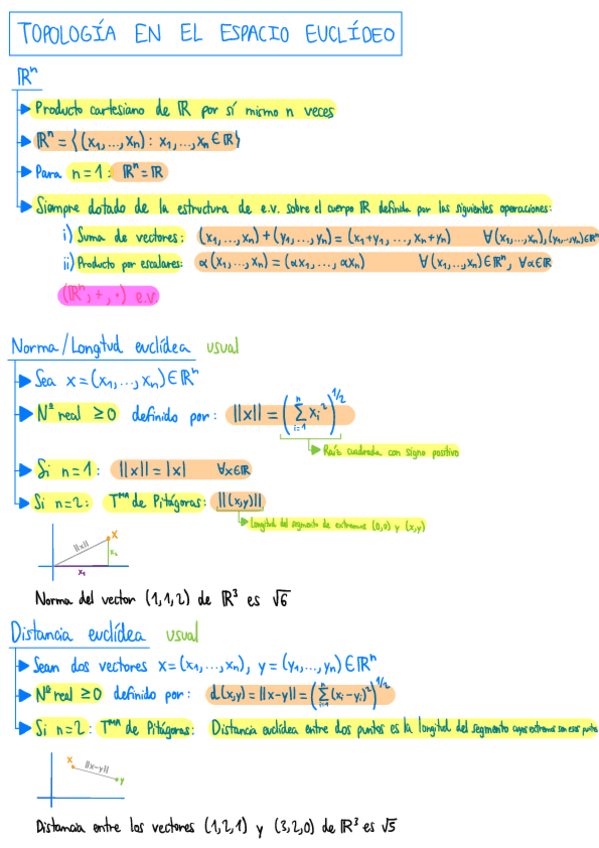 TOPOLOGÍA EN EL ESPACIO EUCLÍDEO
ℝⁿ
Producto cartesiano de ℝ por sí mismo n veces
ℝⁿ = {(x₁,...,xₙ) : x₁,...,xₙ ∈ ℝ}
Para n=1: ℝⁿ = ℝ
Siempre dotado de la estructura de e.v. sobre el cuerpo ℝ definida por las siguientes operaciones:
i) Suma de vectores: (x₁,...,xₙ)+(y₁,...,yₙ) = (x₁+y₁,...,xₙ+yₙ) ∀(x₁,...,xₙ),(y₁,...,yₙ)∈ℝⁿ
ii) Producto por escalares: α(x₁,...,xₙ) = (αx₁,...,αxₙ) ∀(x₁,...,xₙ)∈ℝⁿ, ∀α∈ℝ
(ℝⁿ,+,·) e.v
Norma/Longitud euclídea usual
Sea x=(x₁,...,xₙ)∈ℝⁿ
Nº real ≥0 definido por: ||x|| = (∑ᵢ₌₁ⁿ xᵢ²)^1/2
Raíz cuadrada con signo positivo
Si n=1: ||x|| = |x| ∀x∈ℝ
Si n=2: Tᵐᵃ de Pitágoras: ||(x,y)||
Longitud del segmento de extremos (0,0) y (x,y)
x
||x||
x₂
x₁
Norma del vector (1,1,2) de ℝ³ es √6
Distancia euclídea usual
Sean dos vectores x=(x₁,...,xₙ), y=(y₁,...,yₙ)∈ℝⁿ
Nº real ≥0 definido por: d(x,y) = ||x-y|| = (∑ᵢ₌₁ⁿ (xᵢ-yᵢ)²)^1/2
Si n=2: Tᵐᵃ de Pitágoras: Distancia euclídea entre dos puntos es la longitud del segmento cuyos extremos son esos puntos
x
||x-y||
y
Distancia entre los vectores (1,2,1) y (3,2,0) de ℝ³ es √5